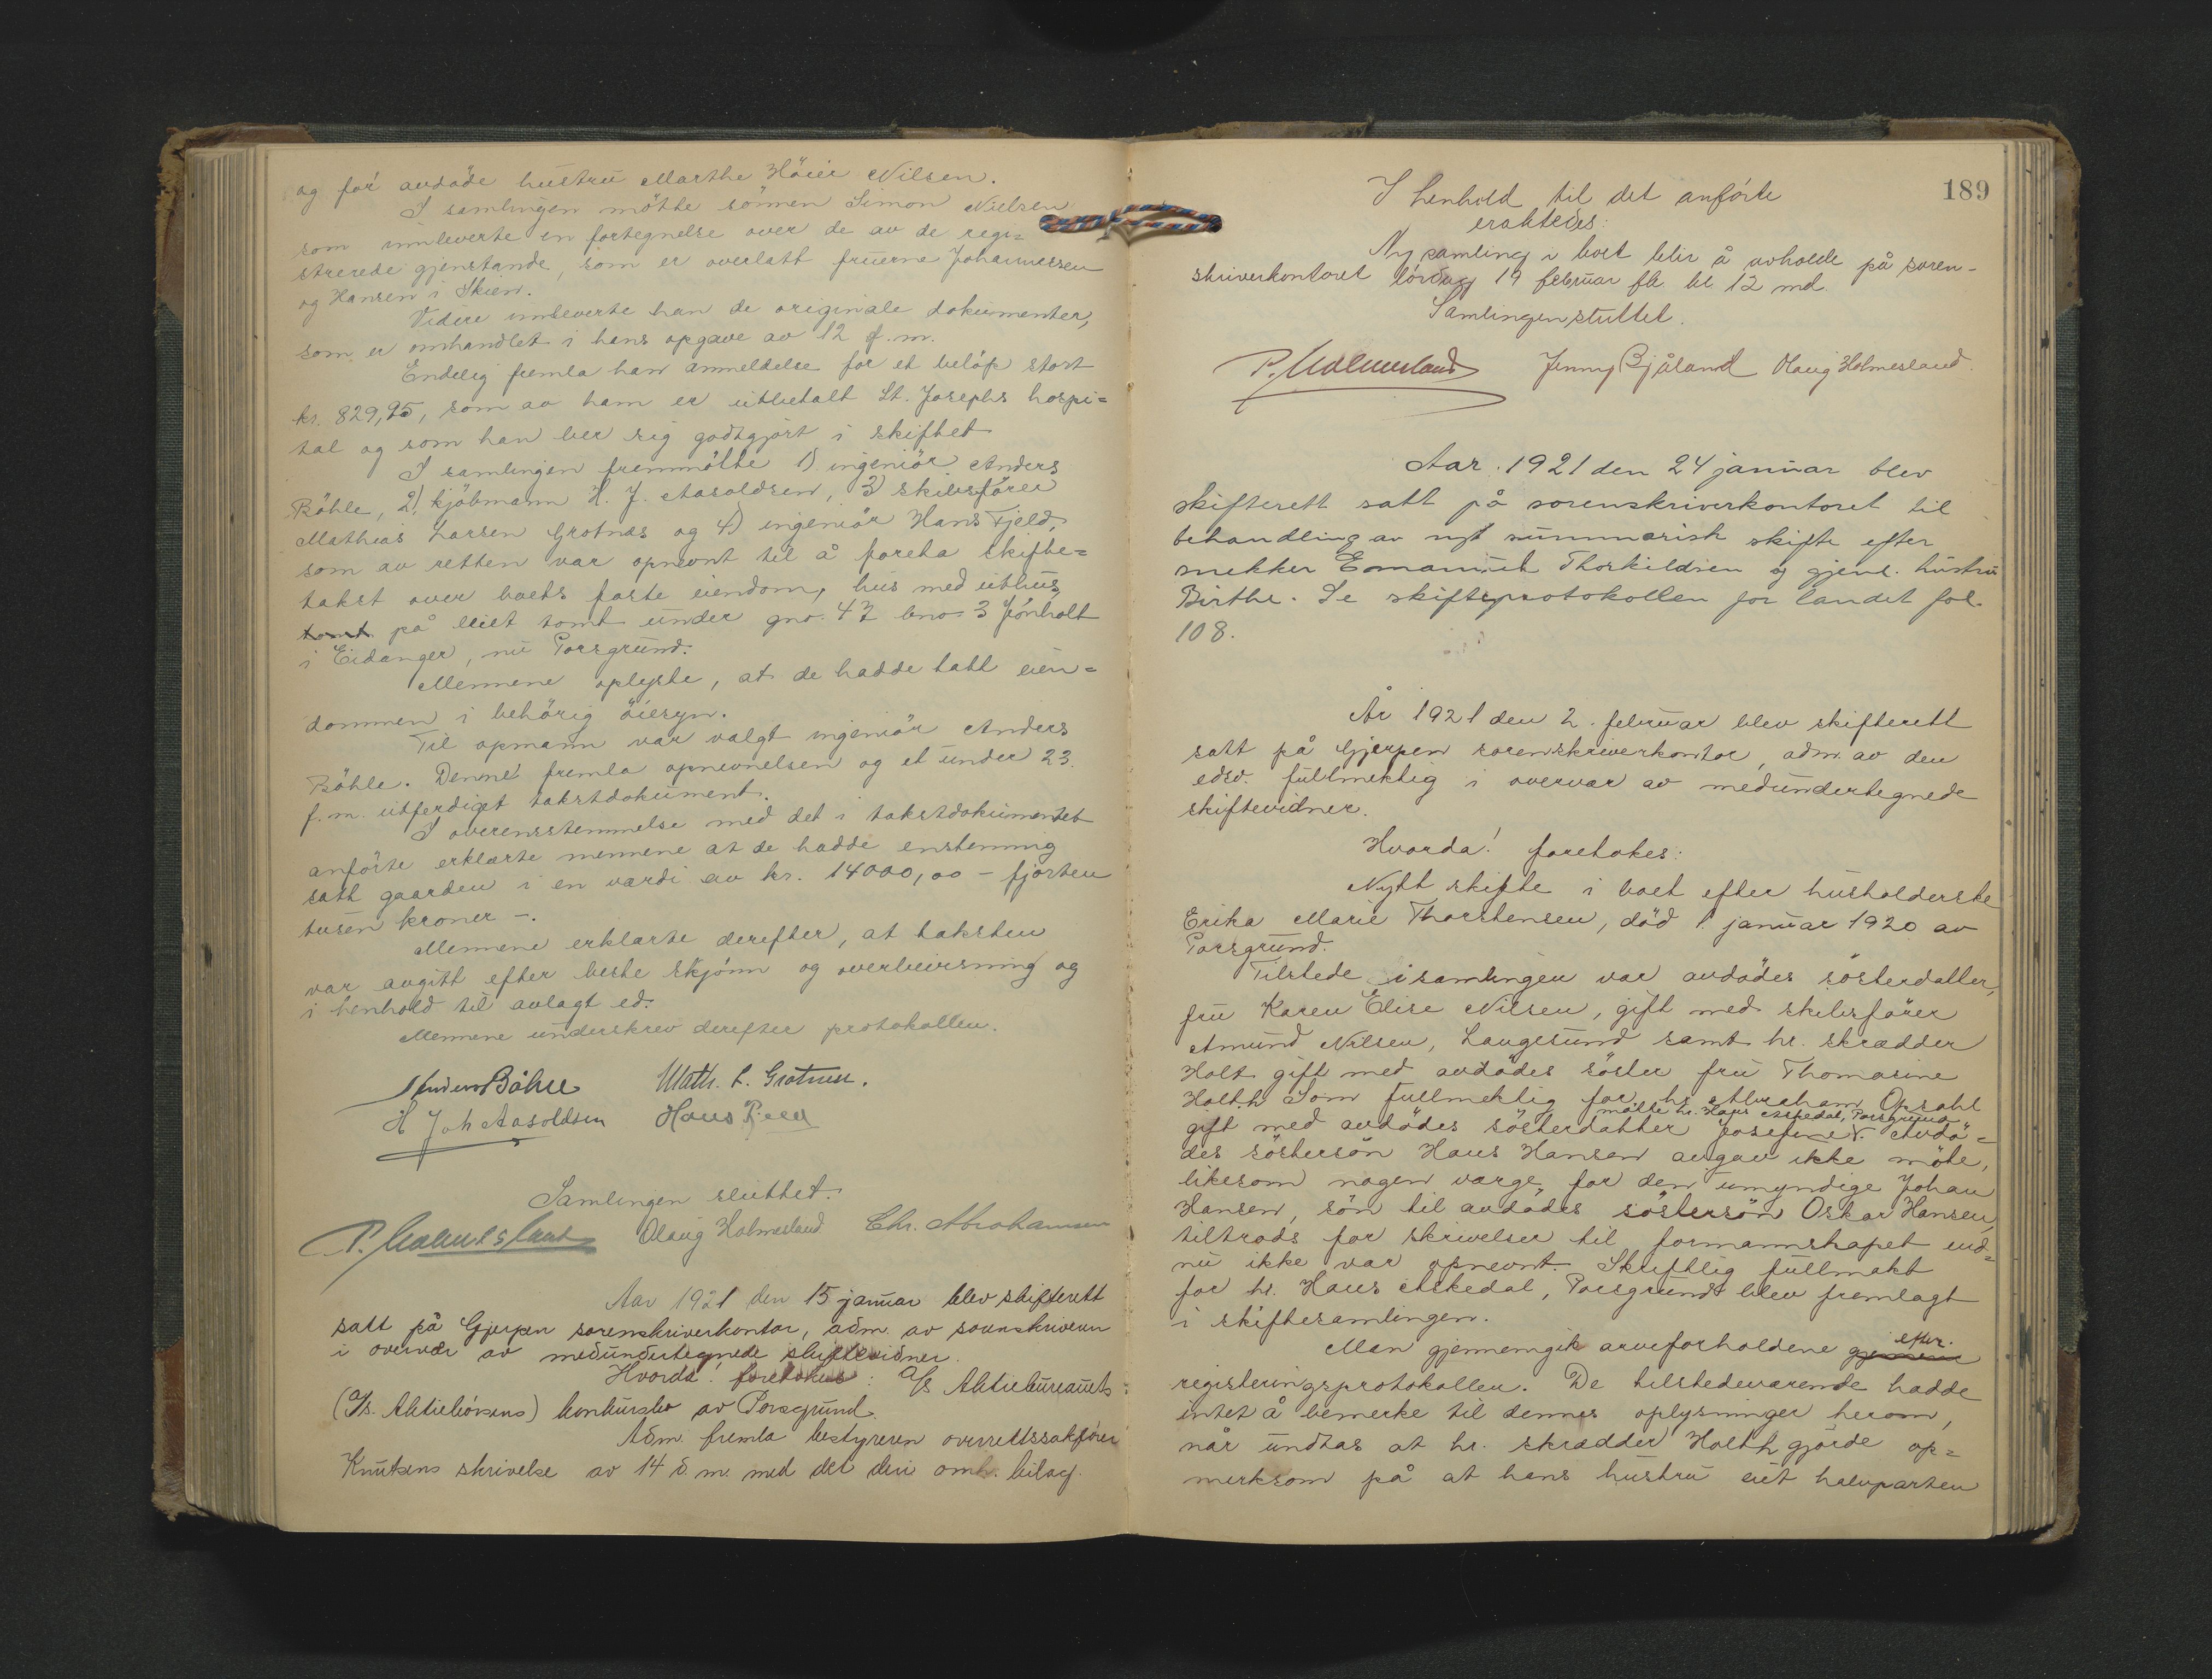 og for avdöde hustru Marthe Höier Nilsen.
I samlingen mötte sönnen Simon Nielsen
som innleverte en fortegnelse over de av de regi=
strerede gjenstande, som er overlatt fruerne Johannessen
og Hansen i Skien.
Videre innleverte han de originale dokumenter,
som er omhandlet i hans opgave av 12 f.m.
Endelig fremla han anmeldelse for et belöp stort
kr. 829,95, som av ham er utbetalt St. Josephs hospi=
tal og som han ber sig godtgjort i skiftet
I samlingen fremmötte 1) ingeniör Anders
Böhle, 2) kjöbmann H. J. Aasoldsen, 3) skibsförer
Mathias Larsen Grotnæs og 4) ingeniör Hans Fjeld,
som av retten var opnevnt til å foreta skifte=
takst over boets faste eiendom, hus med uthus
tomt på leiet tomt under gno. 47 bno 3 Jönholt
i Eidanger, nu Porsgrund.
Mennene oplyste, at de hadde tatt eien=
dommen i behörig öiesyn.
Til opmann var valgt ingeniör Anders
Böhle. Denne fremla opnevnelsen og et under 23.
f.m. utferdiget takstdokument.
I overensstemmelse med det i takstdokumentet
anförte erklærte mennene at de hadde enstemmig
satt gaarden i en værdi av kr. 14000,00 - fjorten
tusen kroner -.
Mennene erklærte derefter, at taksten
var avgitt efter beste skjönn og overbevisning og
i henhold til avlagt ed.
Mennene underskrev derefter protokollen.
Anders Böhle Math. L. Grotnæs.
H Joh Aasoldsen Hans Fjeld
Samlingen sluttet.
P. Holmesland Olaug Holmesland Chr. Abrahamsen
Aar 1921 den 15 januar blev skifterett
satt på Gjerpen sorenskriverkontor, adm. av sorenskriveren
i overvær av medundertegnede skiftevidner.
Hvorda! foretokes: A/S Aktiebureauets
(A/S. Aktiebörsens) konkursbo av Porsgrund.
Adm. fremla bestyreren overrettssakförer
Knutsens skrivelse av 14 d.m. med det deri omh. bilag.
189
I henhold til det anförte
eraktedes:
Ny samling i boet blir å avholde på soren-
skriverkontoret lördag 19 februar fk. kl. 12 md.
Samlingen sluttet.
P. Holmesland Jenny Bjåland Olaug Holmesland.
Aar 1921 den 24 januar blev
skifterett satt på sorenskriverkontoret til
behandling av nyt summarisk skifte efter
snekker Emanuel Thorkildsen og gjenl. hustru
Birthe. Se skifteprotokollen for landet fol.
108.
År 1921 den 2. februar blev skifterett
satt på Gjerpen sorenskriverkontor, adm. av den
edsv. fullmektig i overvær av medundertegnede
skiftevidner.
Hvorda! foretokes:
Nytt skifte i boet efter husholderske
Erika Marie Thorstensen, död 1 januar 1920 av
Porsgrund.
Tilstede i samlingen var avdödes sösterdatter,
fru Karen Elise Nilsen, gift med skibsförer
Amund Nilsen, Langesund samt hr. skrædder
Holt gift med avdödes söster fru Thomasine
Holth. Som fullmektig for hr. Abraham Opsahl
mötte hr. Hans Askedal, Porsgrund
gift med avdödes sösterdatter Josefine V. Avdö=
des söstersön Hans Hansen avgav ikke möte,
likesom nogen værge for den umyndige Johan
Hansen, sön til avdödes söstersön Oskar Hansen,
tiltrods for skrivelser til formannskapet end=
nu ikke var opnevnt. Skriftlig fullmakt
for hr. Hans Askedal, Porsgrund blev fremlagt
i skiftesamlingen.
Man gjennemgik arveforholdene efter.
registeringsprotokollen. De tilstedeværende hadde
intet å bemerke til dennes oplysninger herom,
når undtas at hr. skrædder Holth gjorde op=
merksom på at hans hustru eiet halvparten